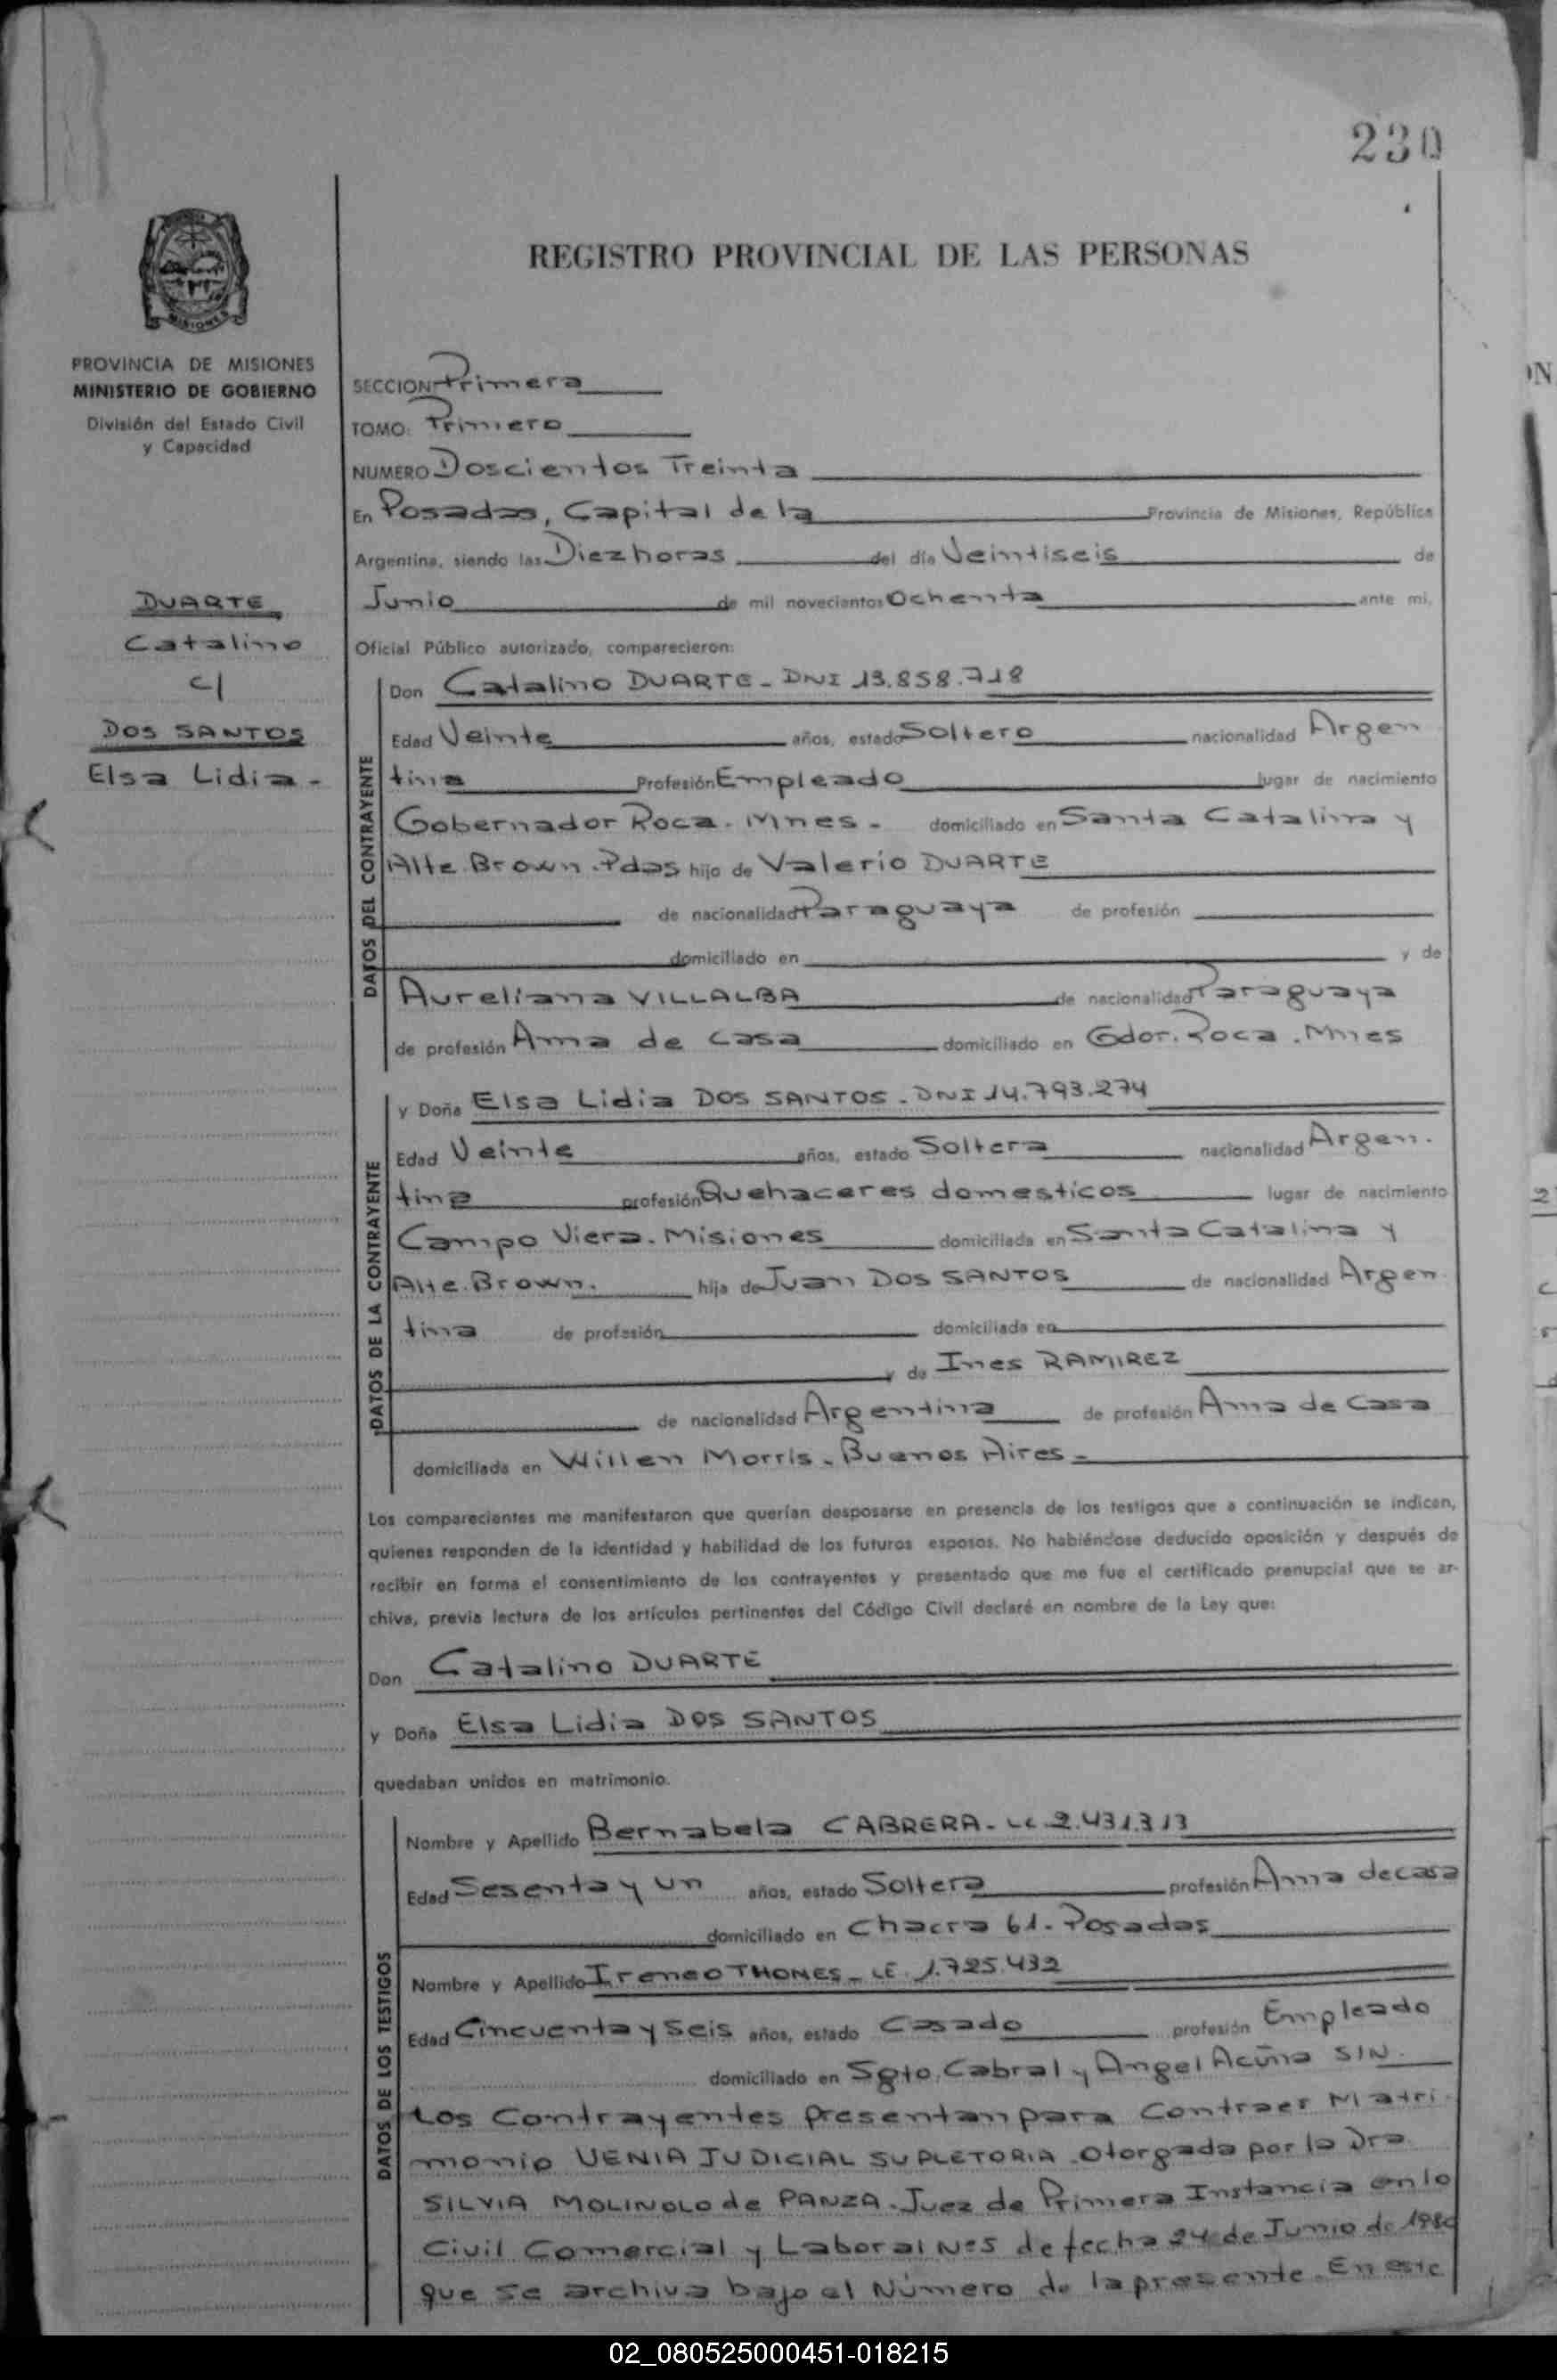 230
REGISTRO PROVINCIAL DE LAS PERSONAS
MISIONES
PROVINCIA DE MISIONES
MINISTERIO DE GOBIERNO
División del Estado Civil
y Capacidad
DUARTE
Catalino
c/
DOS SANTOS
Elsa Lidia -
SECCION Primera
TOMO: Primero
NUMERO Doscientos Treinta
En Posadas, Capital de la Provincia de Misiones, República
Argentina, siendo las Diez horas del día Veintiseis de
Junio de mil novecientos Ochenta ante mi,
Oficial Público autorizado, comparecieron:
DATOS DEL CONTRAYENTE
Don Catalino DUARTE - DNI 13.858.718
Edad Veinte años, estado Soltero nacionalidad Argen
tina Profesión Empleado lugar de nacimiento
Gobernador Roca. Mnes - domiciliado en Santa Catalina y
Alte. Brown. Pdas hijo de Valerio DUARTE
de nacionalidad Paraguaya de profesión
domiciliado en y de
Aureliana VILLALBA de nacionalidad Paraguaya
de profesión Ama de casa domiciliado en Gdor. Roca. Mnes
DATOS DE LA CONTRAYENTE
y Doña Elsa Lidia DOS SANTOS - DNI 14.793.274
Edad Veinte años, estado Soltera nacionalidad Argen.
tina profesión Quehaceres domesticos lugar de nacimiento
Campo Viera. Misiones domiciliada en Santa Catalina y
Alte. Brown. hija de Juan DOS SANTOS de nacionalidad Argen
tina de profesión domiciliada en
y de Ines RAMIREZ
de nacionalidad Argentina de profesión Ama de Casa
domiciliada en Willen Morris - Buenos Aires -
Los comparecientes me manifestaron que querían desposarse en presencia de los testigos que a continuación se indican,
quienes responden de la identidad y habilidad de los futuros esposos. No habiéndose deducido oposición y después de
recibir en forma el consentimiento de los contrayentes y presentado que me fue el certificado prenupcial que se ar-
chiva, previa lectura de los artículos pertinentes del Código Civil declaré en nombre de la Ley que:
Don Catalino DUARTE
y Doña Elsa Lidia DOS SANTOS
quedaban unidos en matrimonio.
DATOS DE LOS TESTIGOS
Nombre y Apellido Bernabela CABRERA - LC. 2.431.313
Edad Sesenta y un años, estado Soltera profesión Ama de casa
domiciliado en Chacra 61 - Posadas
Nombre y Apellido Ireneo THOMES - LE. 1.725.432
Edad Cincuenta y Seis años, estado Casado profesión Empleado
domiciliado en Sgto. Cabral y Angel Acuña S/N.
Los Contrayentes presentan para contraer Matri
monio VENIA JUDICIAL SUPLETORIA otorgada por la Dra
SILVIA MOLINOLO de PANZA. Juez de Primera Instancia en lo
Civil Comercial y Laboral Nº 5 de fecha 24 de Junio de 1980
que se archiva bajo el Número de la presente. En este
02_080525000451-018215